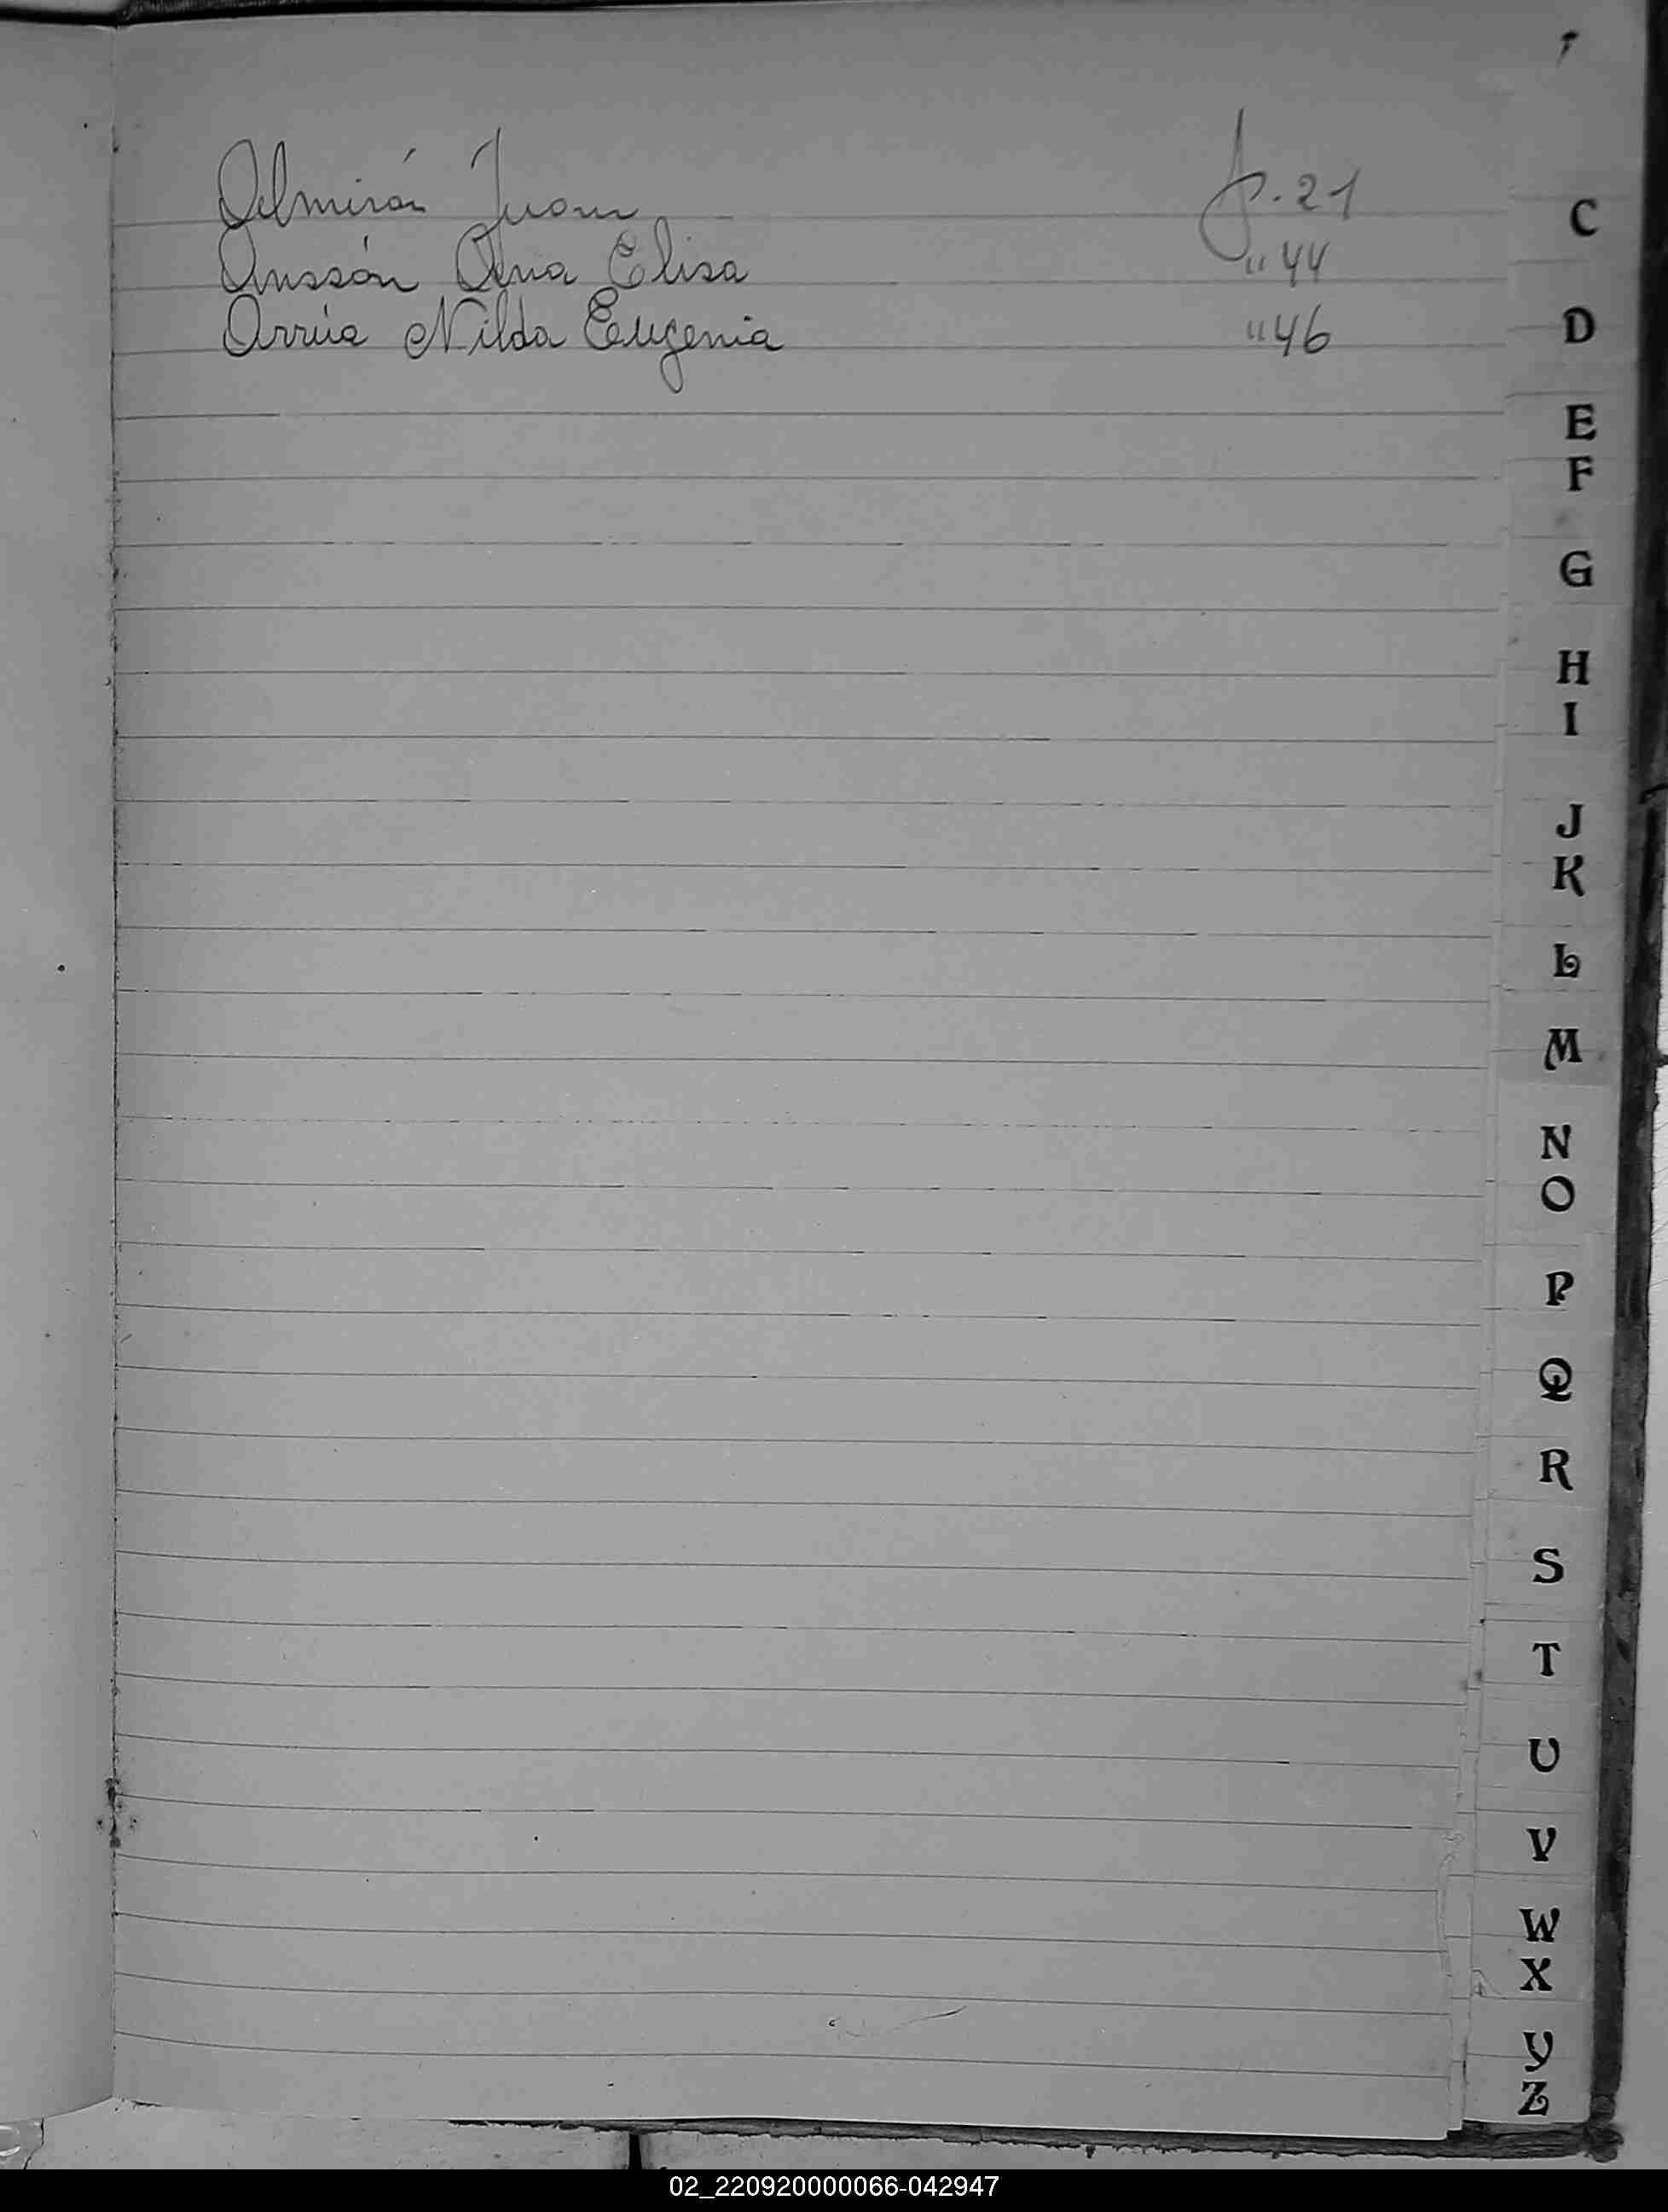 Almirón Juan p. 21
Anssón Ana Elisa " 44
Arrúa Nilda Eugenia " 46
C
D
E
F
G
H
I
J
K
L
M
N
O
P
Q
R
S
T
U
V
W
X
Y
Z
02_220920000066-042947